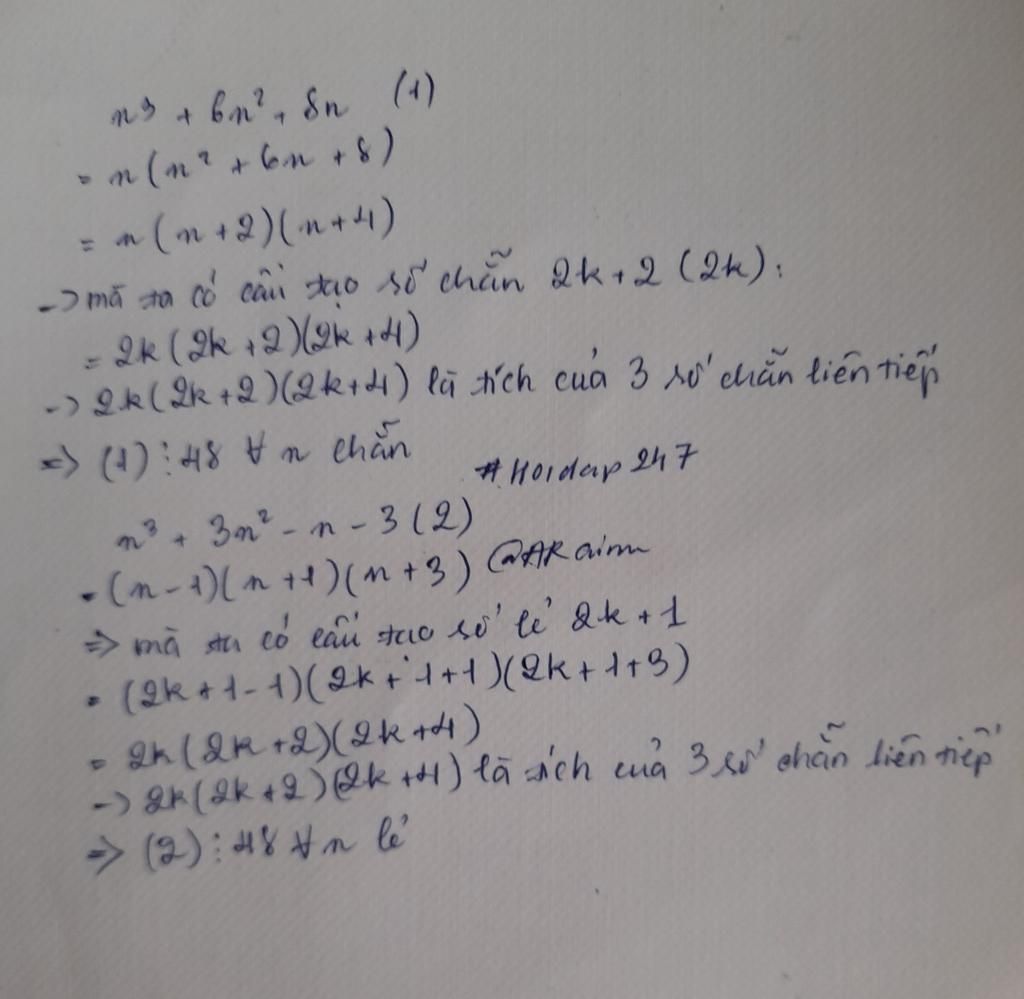 n³ + 6n² + 8n (1)
= n(n² + 6n + 8)
= n(n+2)(n+4)
-> mà ta có cấu tạo số chẵn 2k+2 (2k):
= 2k(2k+2)(2k+4)
-> 2k(2k+2)(2k+4) là tích của 3 số chẵn liên tiếp
=> (1) ⋮ 48 ∀ n chẵn
#Hoidap247
n³ + 3n² - n - 3 (2)
= (n-1)(n+1)(n+3)
=> mà ta có cấu tạo số lẻ 2k+1
= (2k+1-1)(2k+1+1)(2k+1+3)
= 2k(2k+2)(2k+4)
-> 2k(2k+2)(2k+4) là tích của 3 số chẵn liên tiếp
=> (2) ⋮ 48 ∀ n lẻ